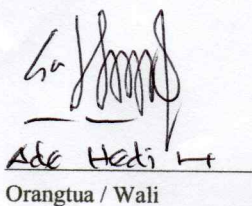 Ade Hedi H
Orangtua / Wali